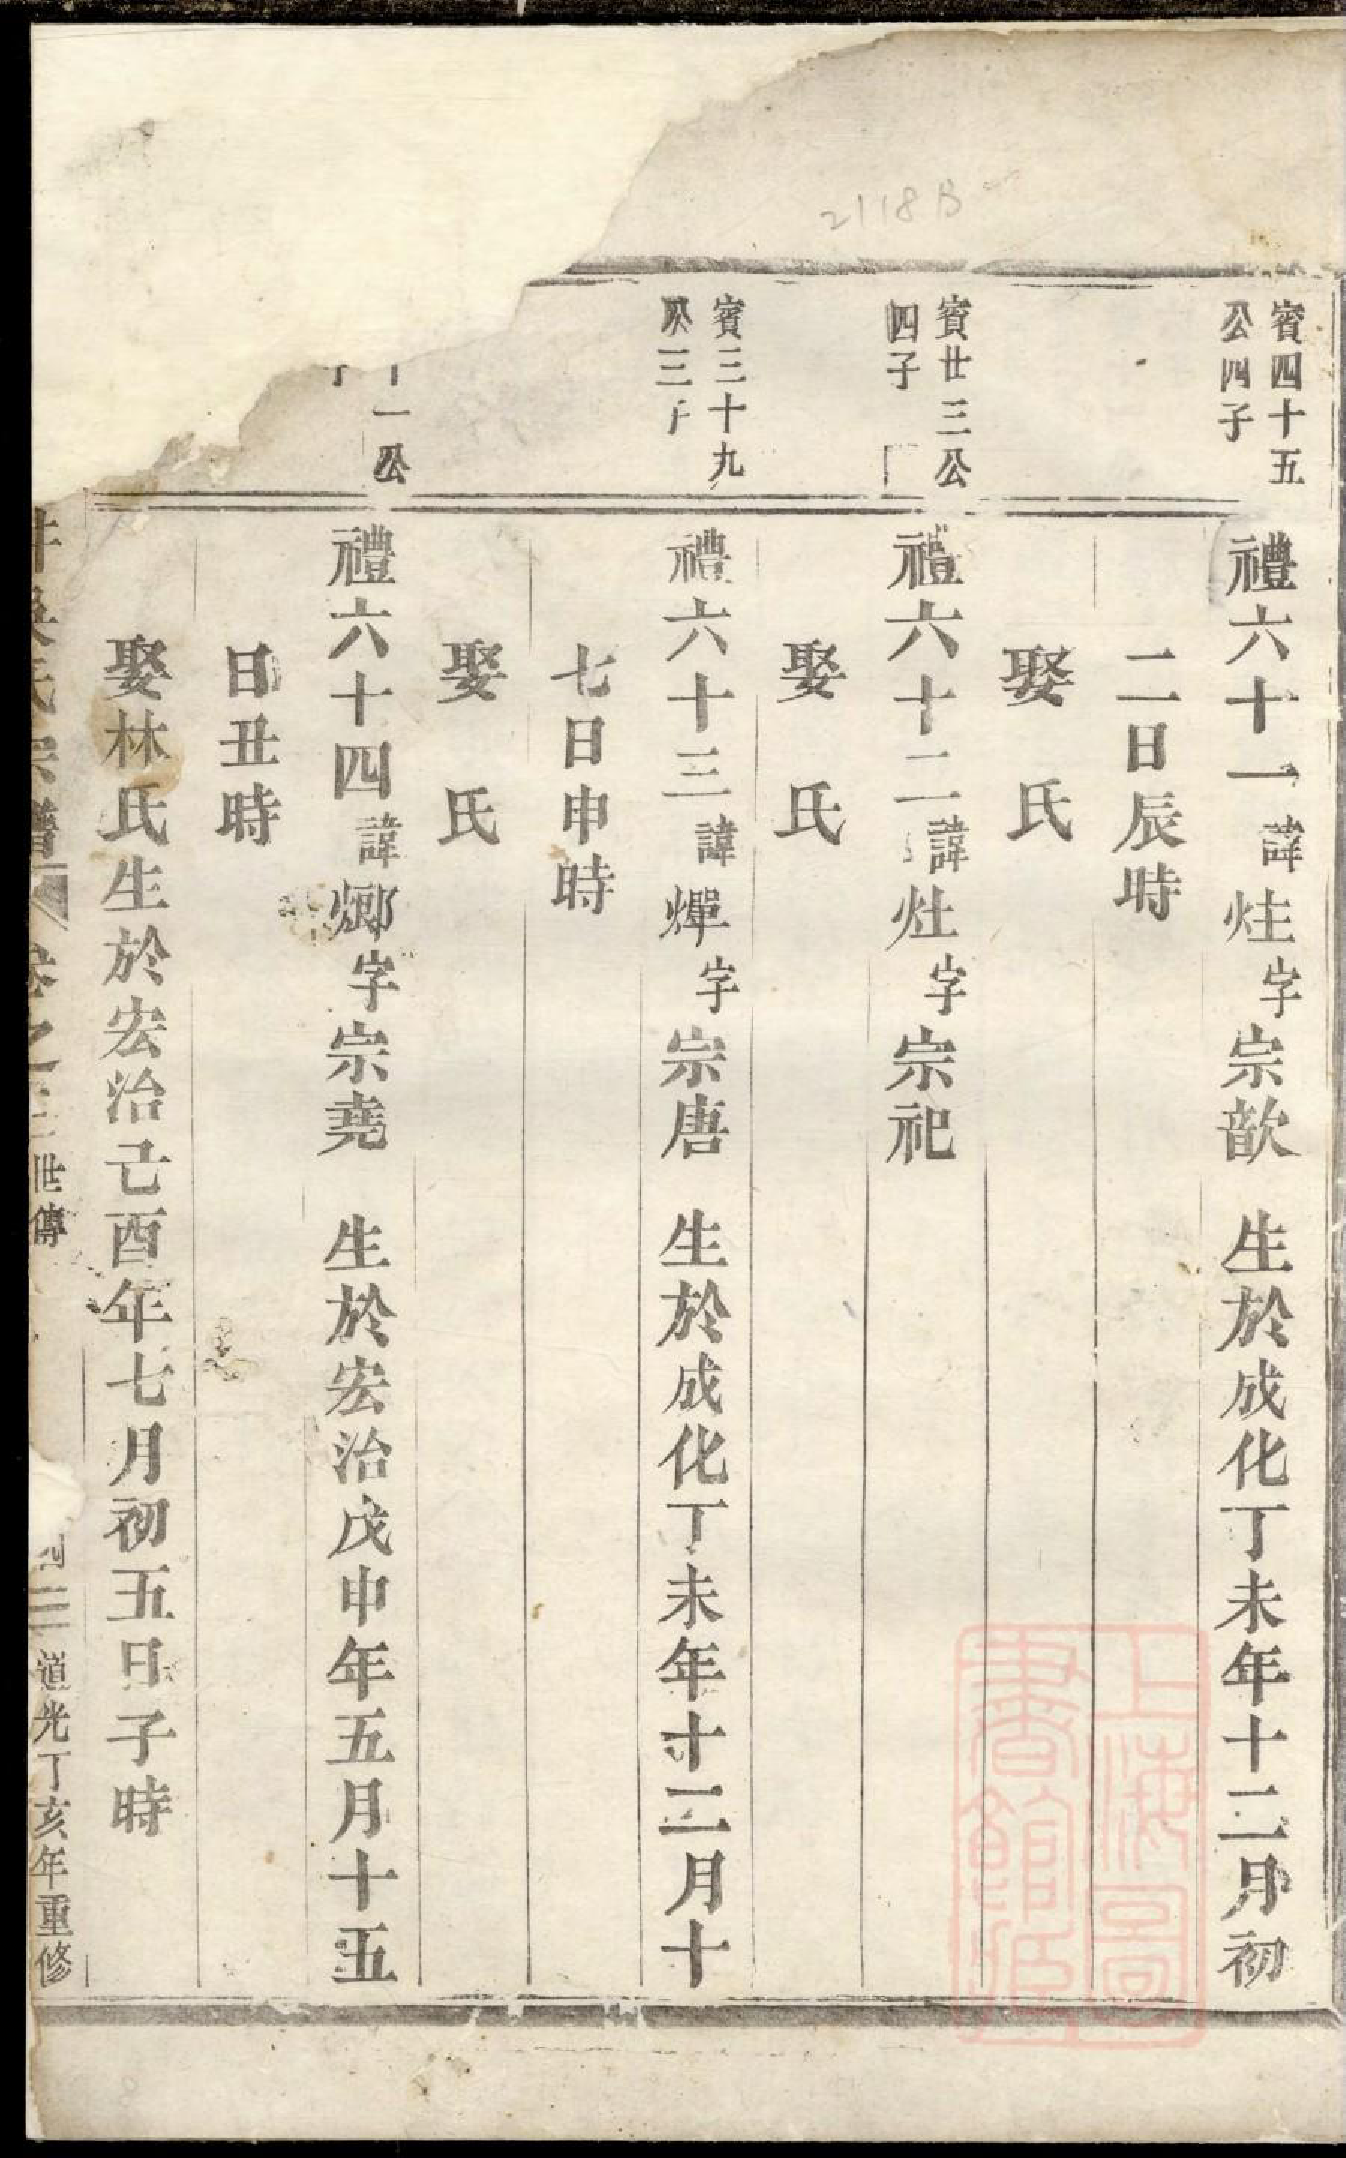 2118B
賓四十五
公四子
禮六十一諱炷字宗歆 生於成化丁未年十二月初
二日辰時
娶 氏
賓廿三公
四子
禮六十二諱灶字宗祀
娶 氏
賓三十九
公三子
禮六十三諱燀字宗唐 生於成化丁未年十二月十
七日申時
娶 氏
十一公
禮六十四諱字宗堯 生於宏治戊申年五月十五
日丑時
娶林氏生於宏治己酉年七月初五日子時
氏宗譜 卷之三 世傳 道光丁亥年重修
上海圖
書館藏